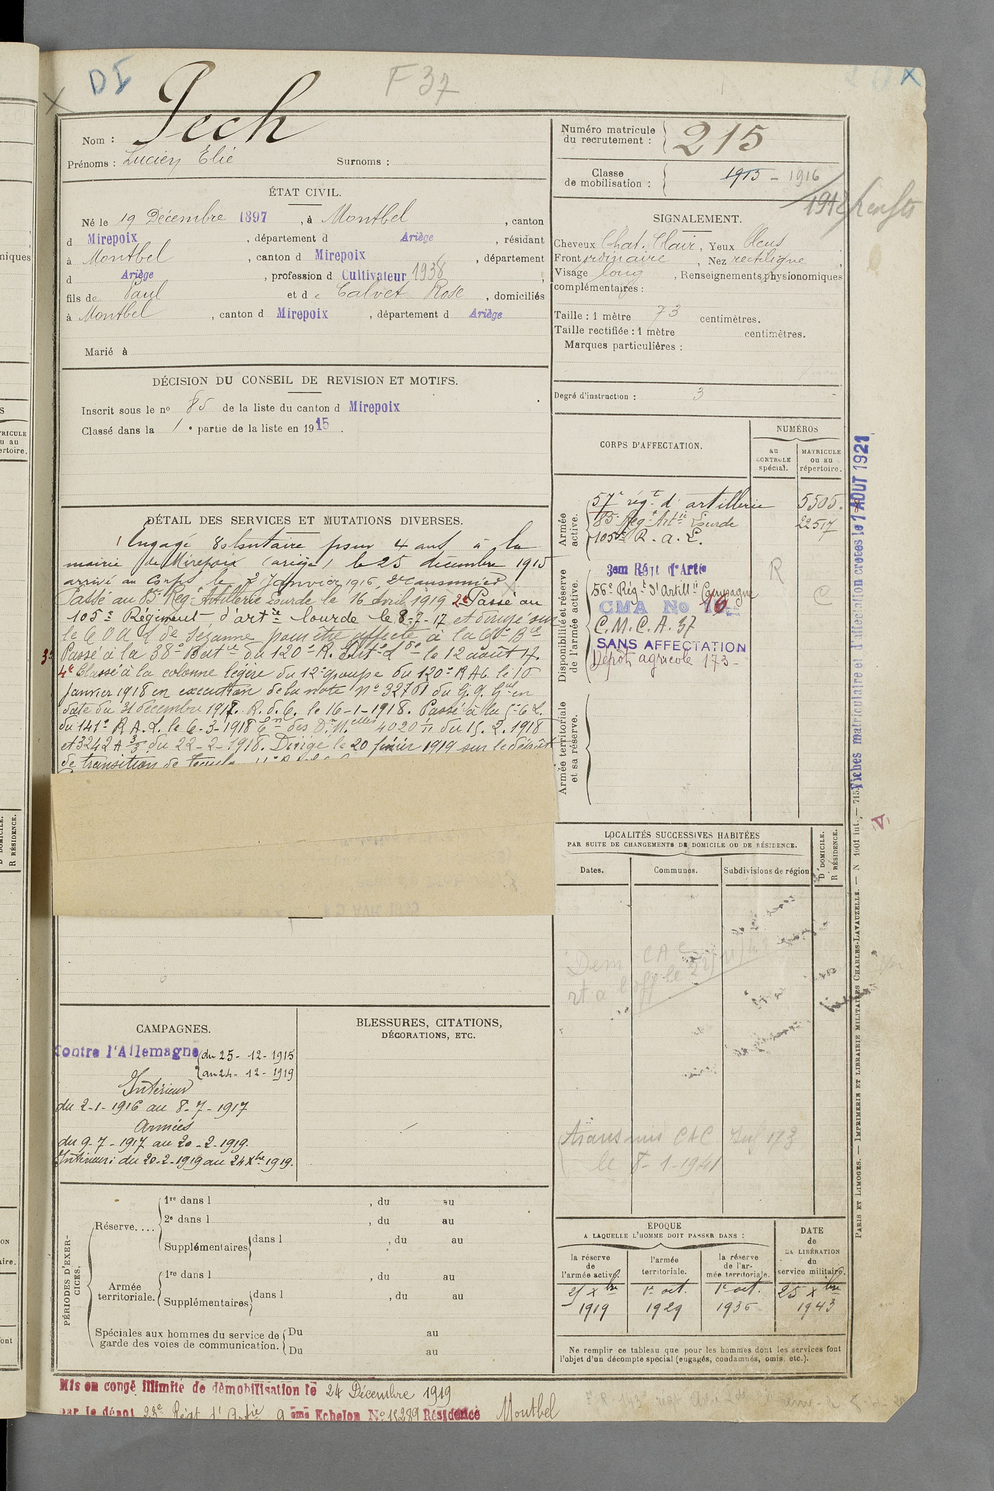 DI
F 37
Nom : Pech
Prénoms : Lucien Elie Surnoms :
ÉTAT CIVIL.
Né le 19 Décembre 1897, à Montbel, canton
d Mirepoix, département d Ariège, résidant
à Montbel, canton d Mirepoix, département
d Ariège, profession d Cultivateur 1938
fils de Paul et de Calvet Rose, domiciliés
à Montbel, canton d Mirepoix, département d Ariège
Marié à
DÉCISION DU CONSEIL DE REVISION ET MOTIFS.
Inscrit sous le no 85 de la liste du canton d Mirepoix
Classé dans la 1e partie de la liste en 1915.
DÉTAIL DES SERVICES ET MUTATIONS DIVERSES.
Engagé Volontaire pour 4 ans à la
mairie de Mirepoix (ariège) le 25 décembre 1915
arrivé au Corps le 2 Janvier 1916, 2e canonnier
Passé au Reg. Artillerie Lourde le 16 Avril 1919 2e Passé au
105e Régiment d'artie lourde le 8-7-17 et dirigé sur
le C O A L de Sézanne pour être affecté à la Bie
3e Passé à la 38e Batie du 120e R. Artie Lde le 12 août 17.
4e Classé à la colonne légère du 12e groupe du 120e RAL le 10
Janvier 1918 en exécution de la note No 32701 du G.Q.Gal en
date du 31 décembre 1917. R. d. C. le 16-1-1918. Passé à la
du 141e R A.L. le 6-3-1918 des D. Melles 4020 du 15.2.1918
et 3242 A du 22-2-1918. Dirigé le 20 février 1919 sur le dépôt
de transition de
CAMPAGNES.
Contre l'Allemagne du 25-12-1915
au 24-12-1919
Intérieur
du 2-1-1916 au 8-7-1917
Armées
du 9-7-1917 au 20-2-1919.
Intérieur: du 20-2-1919 au 24 Xbre 1919.
BLESSURES, CITATIONS,
DÉCORATIONS, ETC.
PÉRIODES D'EXERCICES.
Réserve....
1re dans l , du au
2e dans l , du au
Supplémentaires dans l , du au
Armée
territoriale.
1re dans l , du au
Supplémentaires dans l , du au
Spéciales aux hommes du service de
garde des voies de communication.
Du au
Du au
Mis en congé illimité de démobilisation le 24 Décembre 1919
par le dépôt 23e Régt d'Artie 9 ème Echelon No 15289 Résidence Montbel
Numéro matricule
du recrutement : 215
Classe
de mobilisation : 1915 - 1916
1912
SIGNALEMENT.
Cheveux Chat. Clair, Yeux bleus
Front ordinaire, Nez rectiligne,
Visage long, Renseignements physionomiques
complémentaires :
Taille : 1 mètre 73 centimètres.
Taille rectifiée : 1 mètre centimètres.
Marques particulières :
Degré d'instruction : 3
CORPS D'AFFECTATION.
NUMÉROS
AU
CONTROLE
spécial.
MATRICULE
OU AU
répertoire.
Armée
active.
57e régt d'artillerie 5505.
Reg. Artie Lourde 22517
105e R. a. L.
Disponibilité et réserve
de l'armée active.
3em Régt d'Artie
R
56e Rég. d'Artillie Campagne
C
CMA No 16
C.M.C.A. 37
SANS AFFECTATION
Dépôt agricole 173-
Armée territoriale
et sa réserve.
LOCALITÉS SUCCESSIVES HABITÉES
PAR SUITE DE CHANGEMENTS DE DOMICILE OU DE RÉSIDENCE.
Dates.
Communes.
Subdivisions de région
D DOMICILE.
R RÉSIDENCE.
Transmis CAC 173
le 8-1-1941
ÉPOQUE
A LAQUELLE L'HOMME DOIT PASSER DANS :
DATE
de
LA LIBÉRATION
du
service militaire.
la réserve
de
l'armée active.
l'armée
territoriale.
la réserve
de l'ar-
mée territoriale.
25 Xbre
1919
1er oct.
1929
1er oct.
1935
25 Xbre
1943
Ne remplir ce tableau que pour les hommes dont les services font
l'objet d'un décompte spécial (engagés, condamnés, omis, etc.).
Fiches matriculaire et d'affectation créées le 1 AOUT 1921
PARIS ET LIMOGES. — IMPRIMERIE ET LIBRAIRIE MILITAIRES CHARLES-LAVAUZELLE.